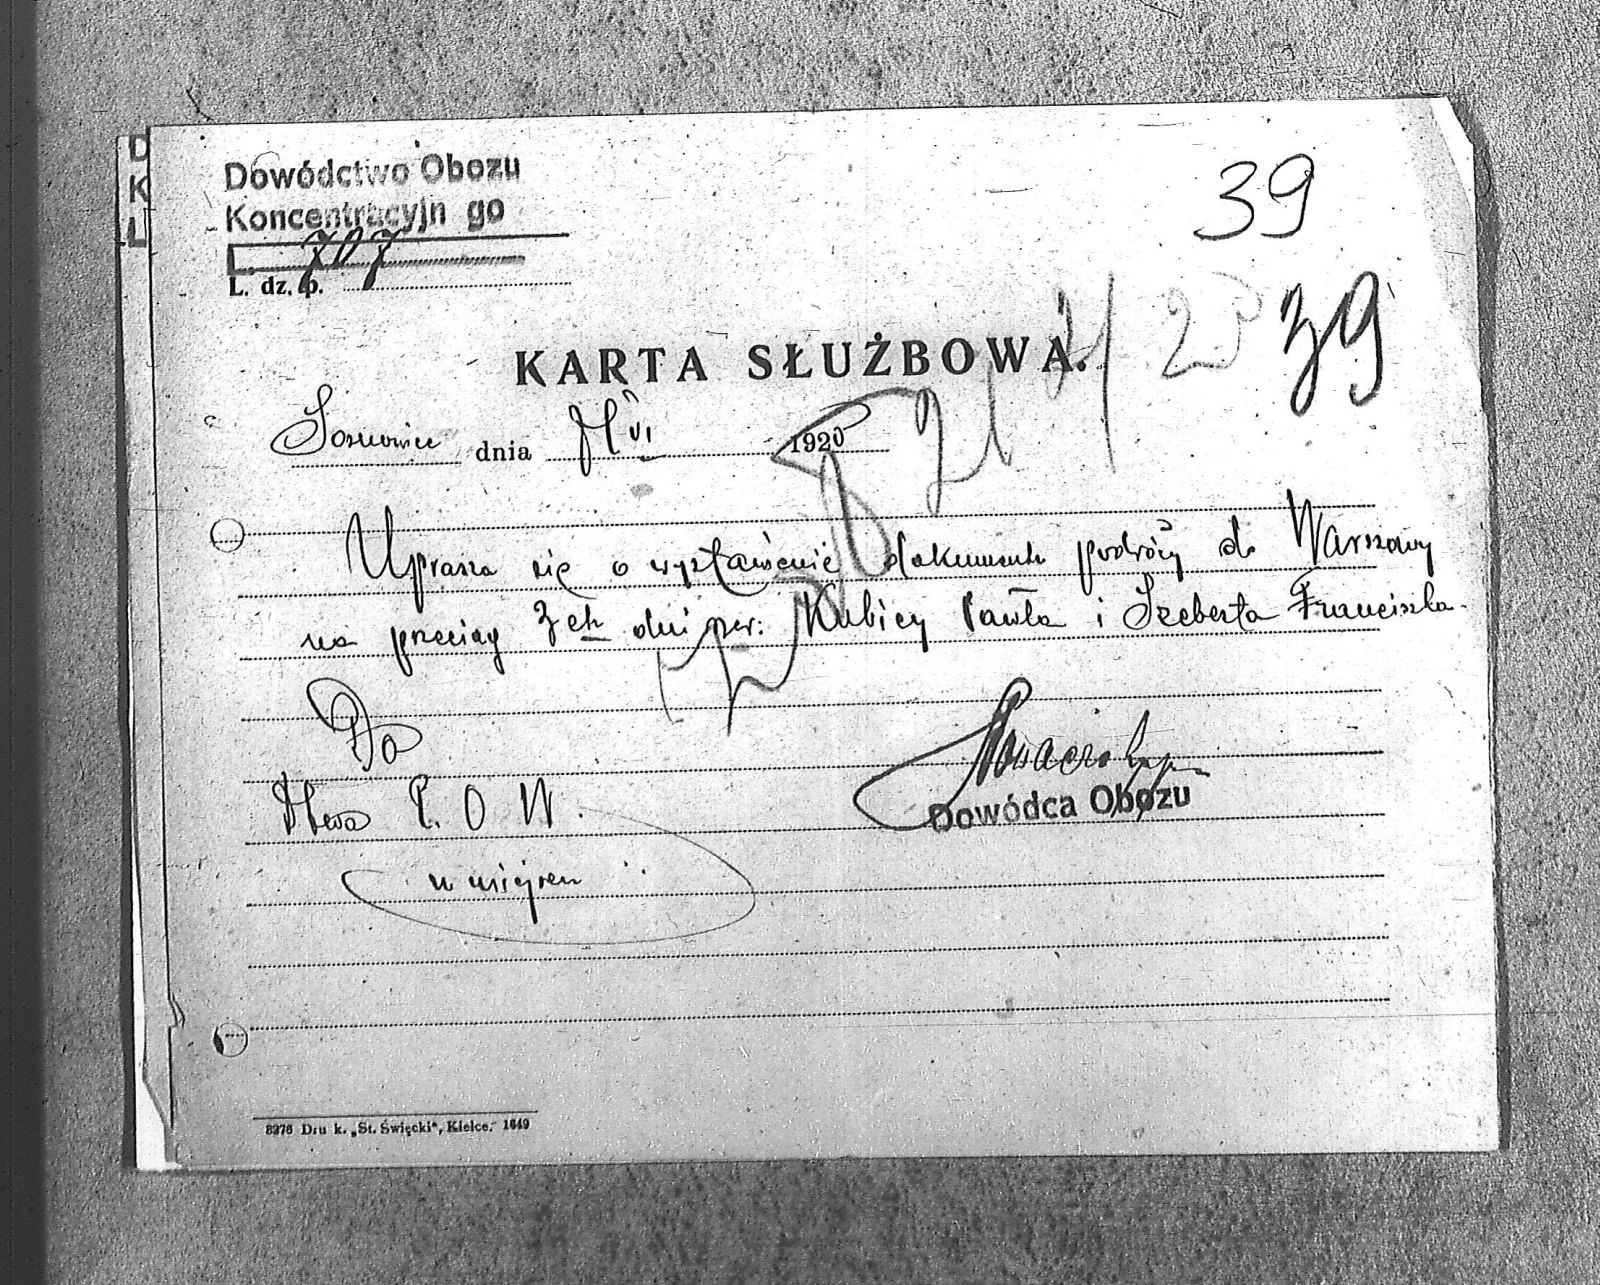 D
K
L
Dowódctwo Obozu
Koncentracyjn go
L. 707
L. dz. p.
39
39
KARTA SŁUŻBOWA.
Sosnowice dnia VI 1920
Uprasza się o wystawienie dokumentu podróży do Warszawy
na przeciąg 3ch dni per. Kubicy Pawła i Szeberta Franciszka.
Do
Dtwa P. O. W.
w miejscu
Dowódca Obozu
8276 Druk. „St. Święcki", Kielce. 1649